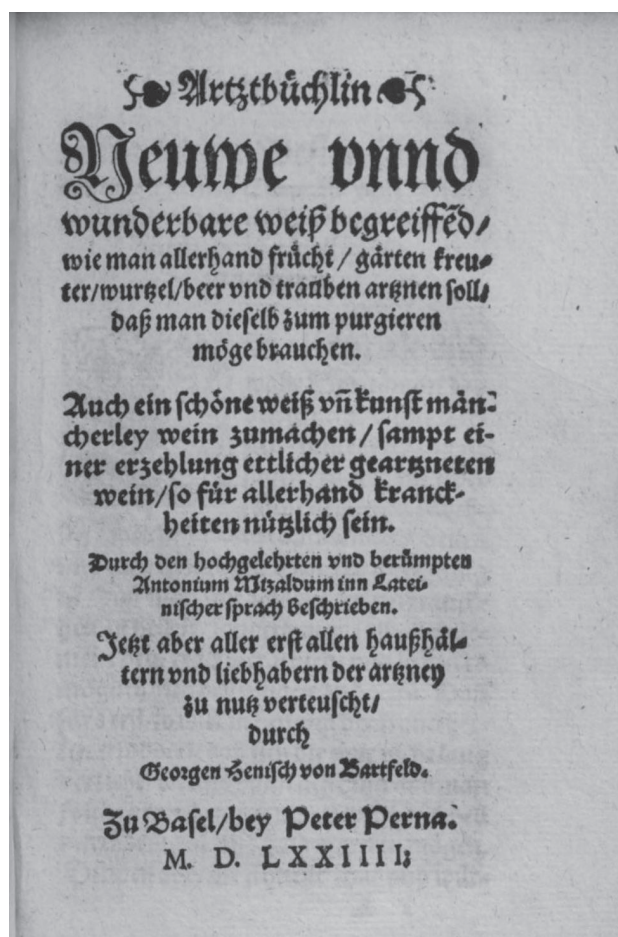 Artztbüchlin
Neuwe vnnd
wunderbare weiß begreiffẽd/
wie man allerhand frücht / gärten kreu-
ter/wurtzel/beer vnd trauben artznen soll/
daß man dieselb zum purgieren
möge brauchen.
Auch ein schöne weiß vñ kunst män-
cherley wein zumachen / sampt ei-
ner erzehlung ettlicher geartzneten
wein/so für allerhand kranck-
heiten nützlich sein.
Durch den hochgelehrten vnd berümpten
Antonium Mizaldum inn Latei-
nischer sprach beschrieben.
Jetzt aber aller erst allen haußhäl-
tern vnd liebhabern der artzney
zu nutz verteuscht/
durch
Georgen Henisch von Bartfeld.
Zu Basel/bey Peter Perna.
M. D. LXXIIII;